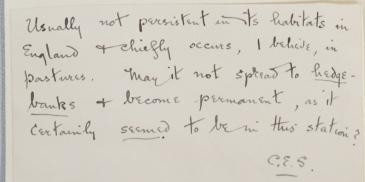 Usually not persistent in its habitats in
England & chiefly occurs, I believe, in
pastures. May it not spread to hedge-
banks & become permanent, as it
certainly seemed to be in this station?
C.E.S.